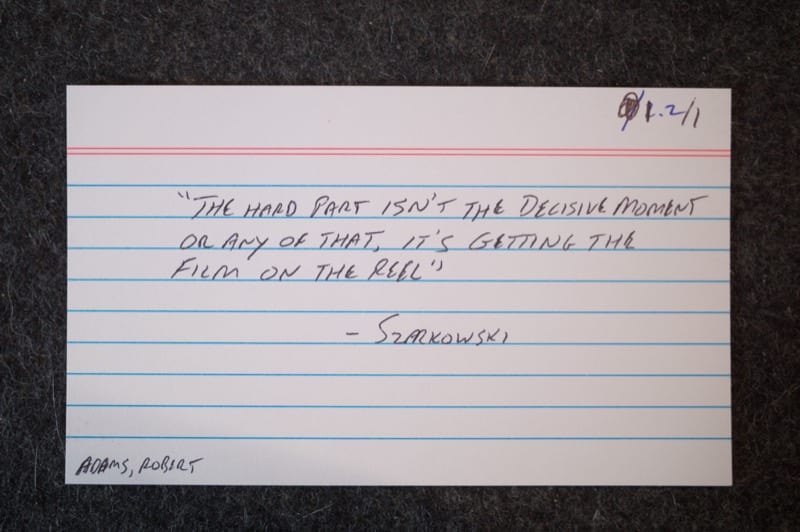 1.2/1
"THE HARD PART ISN'T THE DECISIVE MOMENT
OR ANY OF THAT, IT'S GETTING THE
FILM ON THE REEL"
- SZARKOWSKI
ADAMS, ROBERT